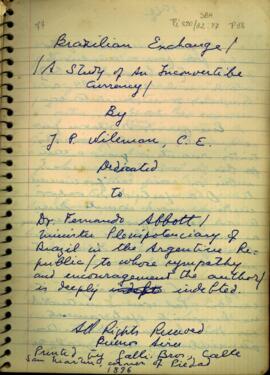 Brazilian Exchange/
/A Study of An Inconvertible
Currency/
By
J. P. Wileman, C. E.
Dedicated
to
Dr. Fernando Abbott/
minister Plenipotenciary of
Brazil in the Argentine Re-
public/ to whose sympathy
and encouragement the author/
is deeply indebted.
All Rights Reserved
Buenos Aires
Printed by Galli Bros, Calle
San Martin corner of Piedad
1896